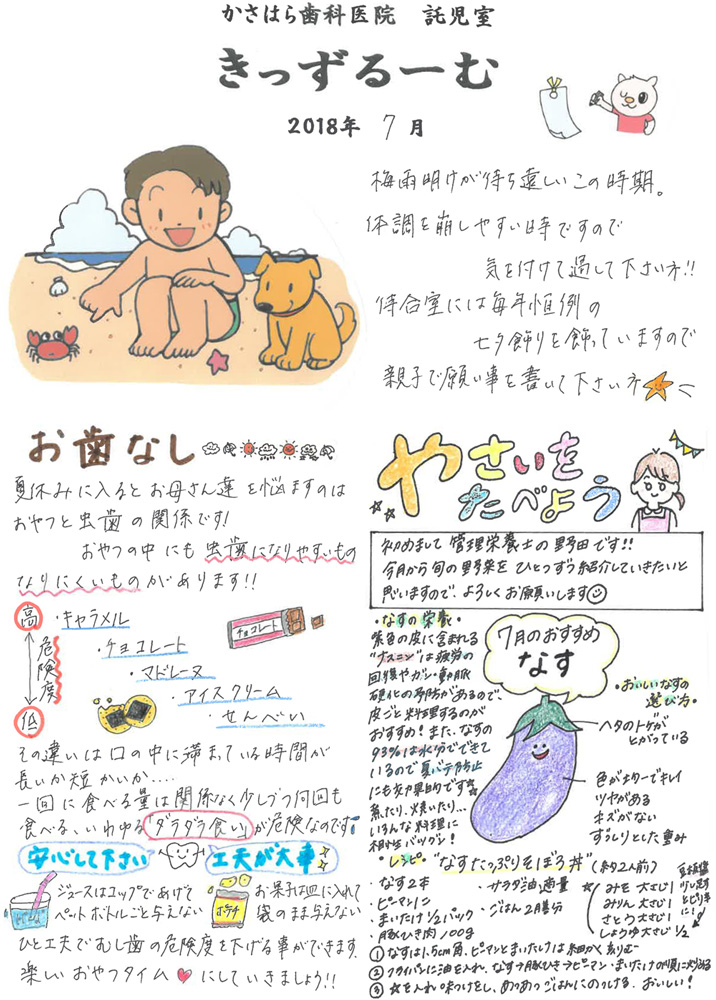 かさはら歯科医院　託児室
きっずるーむ
2018年 7月
梅雨明けが待ち遠しいこの時期。
体調を崩しやすい時ですので
気を付けて過して下さいネ!!
待合室には毎年恒例の
七夕飾りを飾っていますので
親子で願い事を書いて下さいネ
お歯なし
夏休みに入るとお母さん達を悩ますのは
おやつと虫歯の関係です!
おやつの中にも虫歯になりやすいもの
なりにくいものがあります!!
高
危険度
低
・キャラメル
・チョコレート
・マドレーヌ
・アイスクリーム
・せんべい
チョコレート
その違いは口の中に滞まっている時間が
長いか短かいか....
一回に食べる量は関係なく少しづつ何回も
食べる、いわゆる「ダラダラ食い」が危険なのです
安心して下さい
工夫が大事
ジュースはコップであげて
ペットボトルごと与えない
ポテチ
お菓子は皿に入れて
袋のまま与えない
ひと工夫でむし歯の危険度を下げる事ができます。
楽しいおやつタイム♥にしていきましょう!!
やさいを
たべよう
初めまして管理栄養士の野田です!!
今月から旬の野菜をひとつずつ紹介していきたいと
思いますので、よろしくお願いします
・なすの栄養・
紫色の皮に含まれる
"ナスニン"は疲労の
回復やガン・動脈
硬化の予防があるので、
皮ごと料理するのが
おすすめ!また、なすの
93%は水分でできて
いるので夏バテ防止
にも効果的です☆
煮たり、焼いたり...
いろんな料理に
相性バツグン!
7月のおすすめ
なす
・おいしいなすの
選び方・
ヘタのトゲが
とがっている
色が均一でキレイ
ツヤがある
キズがない
ずっしりとした重み
・レシピ・"なすたっぷりそぼろ丼"(約2人前)
・なす2本
・ピーマン1こ
・まいたけ1/2パック
・豚ひき肉100g
・サラダ油適量
・ごはん2膳分
みそ 大さじ1
みりん 大さじ1
さとう 大さじ1
しょうゆ 大さじ1/2
①なすは1.5cm角、ピーマンとまいたけは細かく刻む
②フライパンに油を入れ、なす→豚ひき→ピーマン・まいたけの順に炒める
③☆を入れ味つけをし、あつあつごはんにのっける。おいしい!